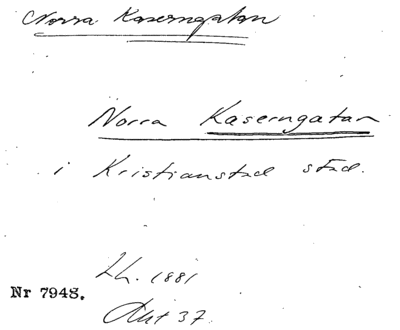 Norra Kaserngatan
Norra Kaserngatan
i Kristianstad stad.
Lh. 1881
Nr 7948.
Akt 37.